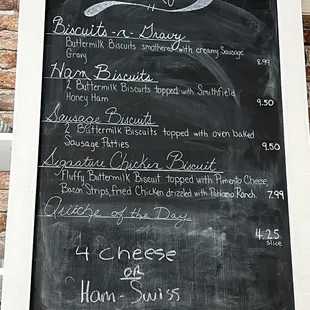 Biscuits-n-Gravy
Buttermilk Biscuits smothered with creamy Sausage
Gravy 8.99
Ham Biscuits
2 Buttermilk Biscuits topped with Smithfield
Honey Ham 9.50
Sausage Biscuits
2 Buttermilk Biscuits topped with oven baked
Sausage Patties 9.50
Signature Chicken Biscuit
Fluffy Buttermilk Biscuit topped with Pimento Cheese
Bacon Strips, fried Chicken drizzled with Poblano Ranch. 7.99
Quiche of the Day
4.25
slice
4 Cheese
OR
Ham-Swiss